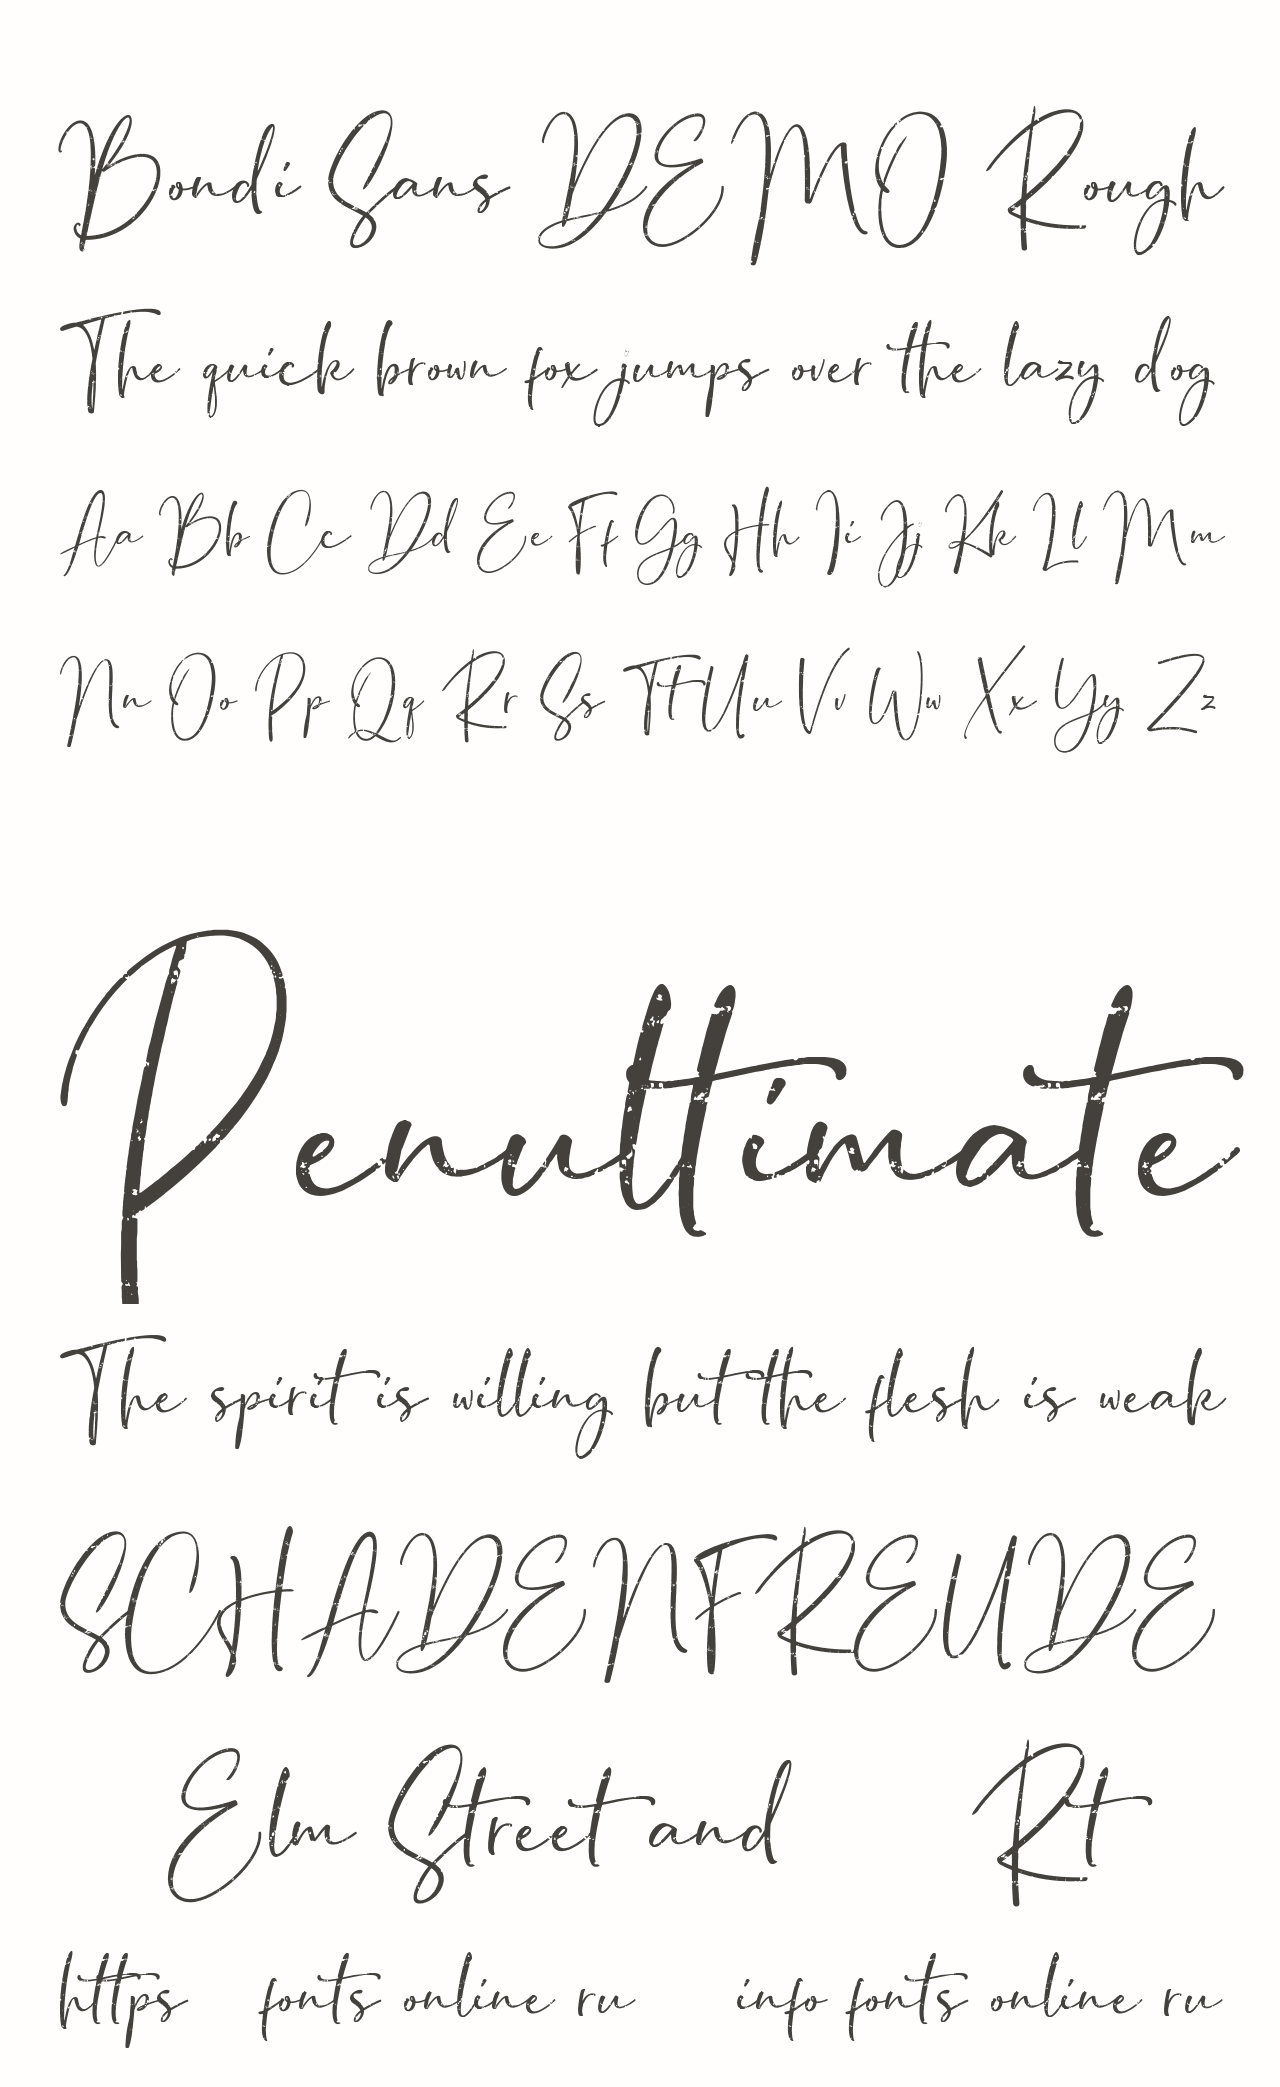 Bondi Sans DEMO Rough
The quick brown fox jumps over the lazy dog
Aa Bb Cc Dd Ee Ff Gg Hh Ii Jj Kk Ll Mm
Nn Oo Pp Qq Rr Ss Tt Uu Vv Ww Xx Yy Zz
Penultimate
The spirit is willing but the flesh is weak
SCHADENFREUDE
Elm Street and Rt
https fonts online ru info fonts online ru